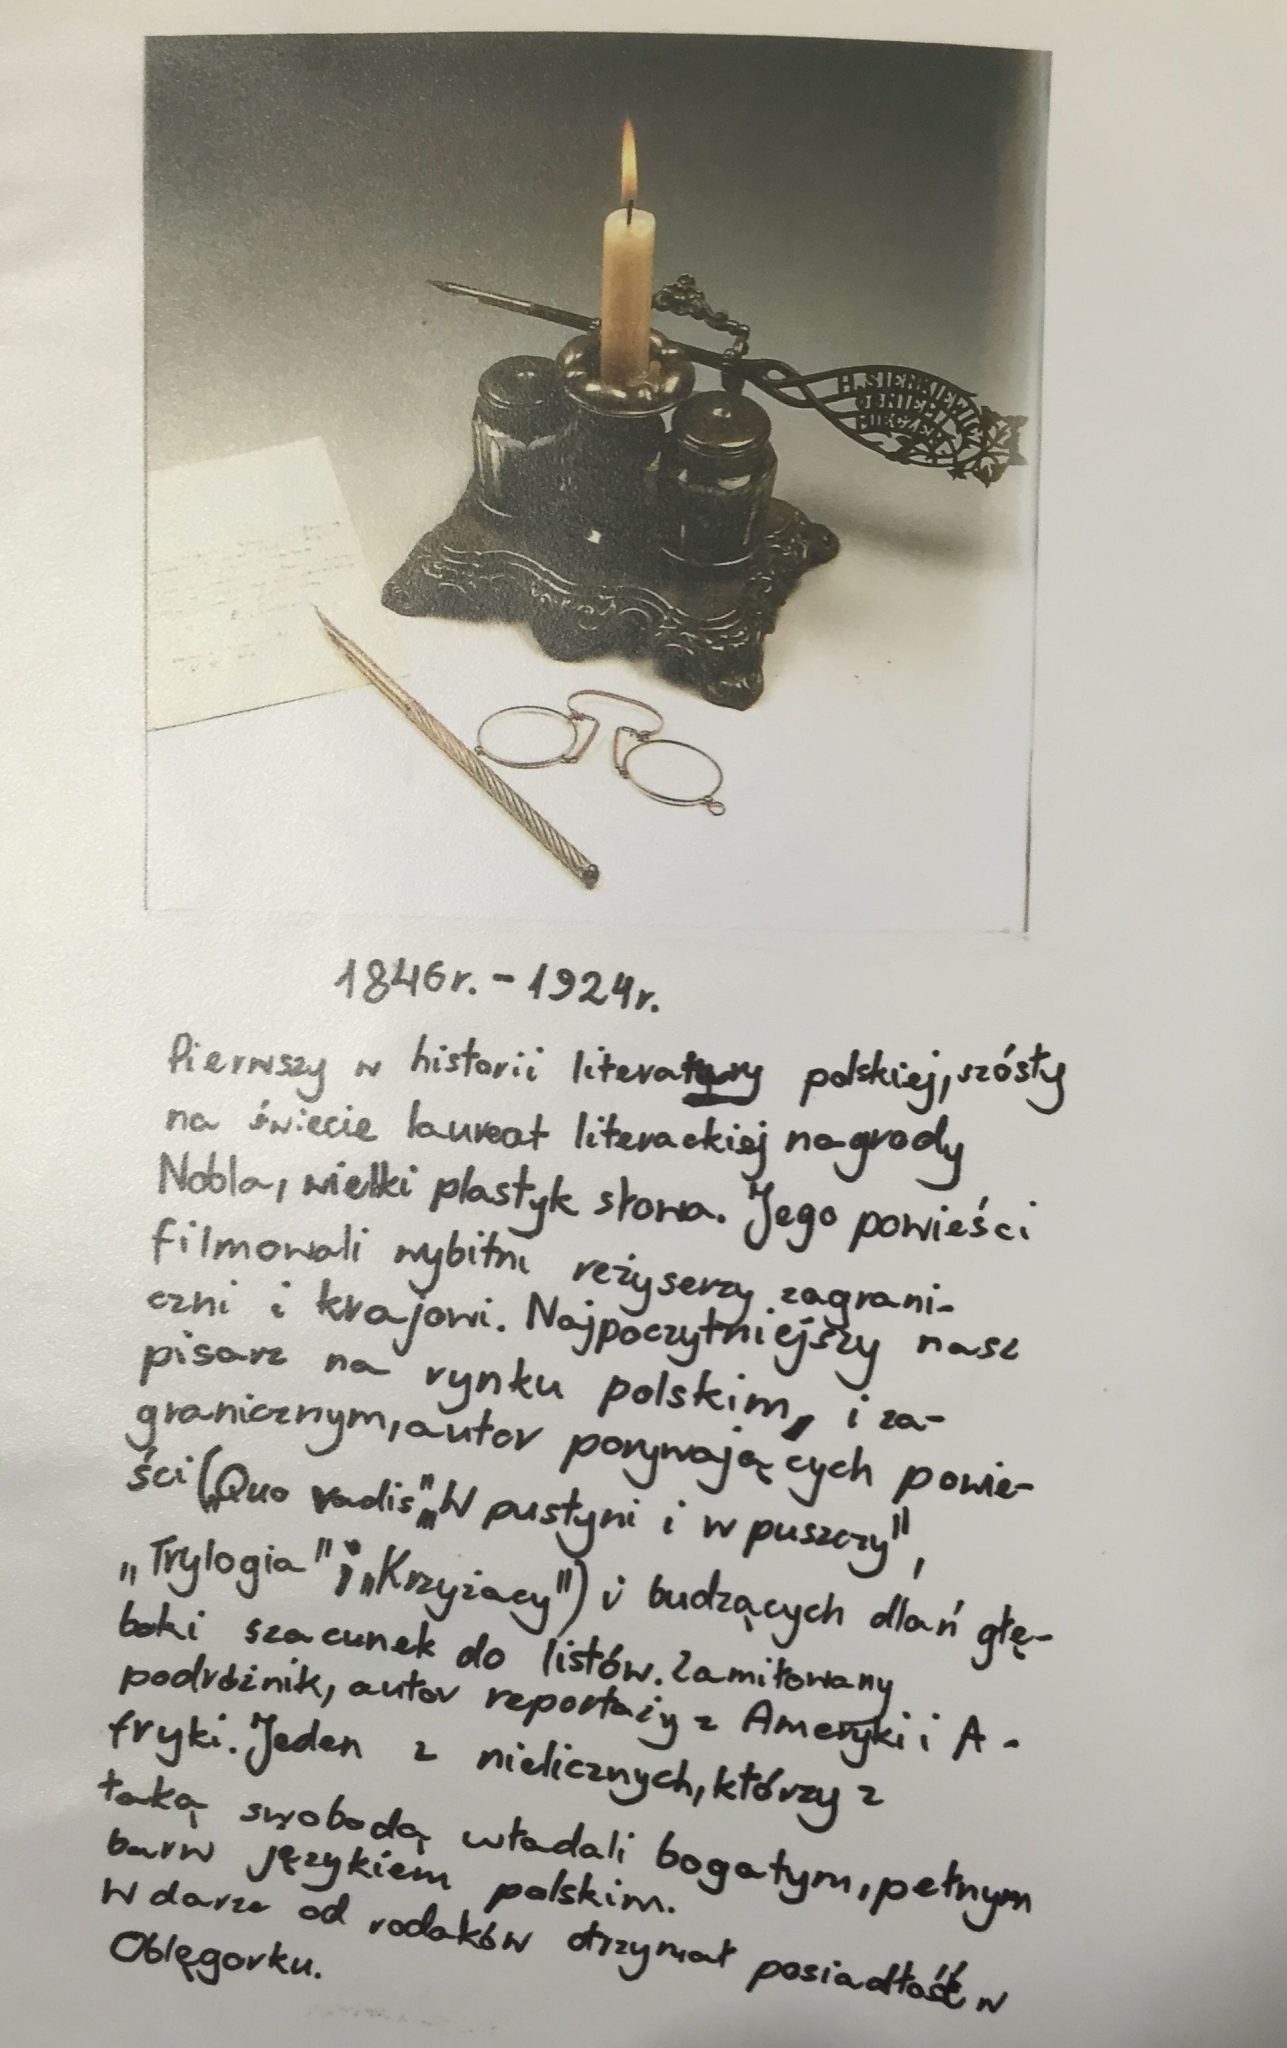 H. SIENKIEWICZ
OGNIEM I
MIECZEM
1846r. - 1924r.
Pierwszy w historii literatury polskiej, szósty
na świecie laureat literackiej nagrody
Nobla, wielki plastyk słowa. Jego powieści
filmowali wybitni reżyserzy zagrani-
czni i krajowi. Najpoczytniejszy nasz
pisarz na rynku polskim, i za-
granicznym, autor porywających powie-
ści („Quo vadis" „W pustyni i w puszczy",
„Trylogia" i „Krzyżacy") i budzących dlań głę-
boki szacunek do listów. Zamiłowany
podróżnik, autor reportaży z Ameryki i A-
fryki. Jeden z nielicznych, którzy z
taką swobodą władali bogatym, pełnym
barw językiem polskim.
W darze od rodaków otrzymał posiadłość w
Oblęgorku.